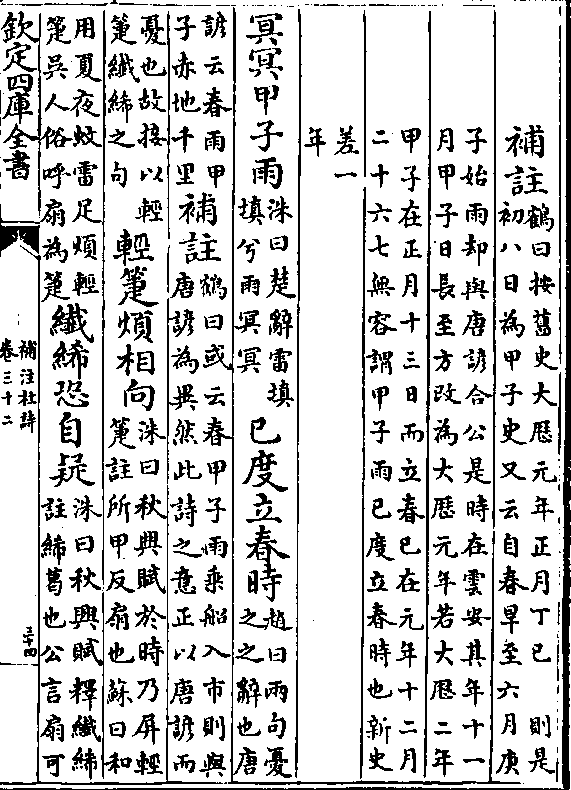 補註鶴曰按舊史大歷元年正月丁巳　則是
初八日為甲子史又云自春旱至六月庚
子始雨却與唐諺合公是時在雲安其年十一
月甲子日長至方改為大歷元年若大歷二年
甲子在正月十三日而立春已在元年十二月
二十六七無容謂甲子雨已度立春時也新史
差一
年
冥冥甲子雨洙曰楚辭雷填
填兮雨冥冥已度立春時趙曰兩句憂
之之辭也唐
諺云春雨甲
子赤地千里補註鶴曰或云春甲子雨乘船入市則與
唐諺為異然此詩之意正以唐諺而
憂也故接以輕
箑纖絺之句輕箑煩相向洙曰秋興賦於時乃屏輕
箑註所甲反扇也蘇曰和
用夏夜蚊雷足煩輕
箑吳人俗呼扇為箑纖絺恐自疑洙曰秋興賦釋纖絺
註絺葛也公言扇可
欽定四庫全書
補注杜詩
卷三十二
三十四